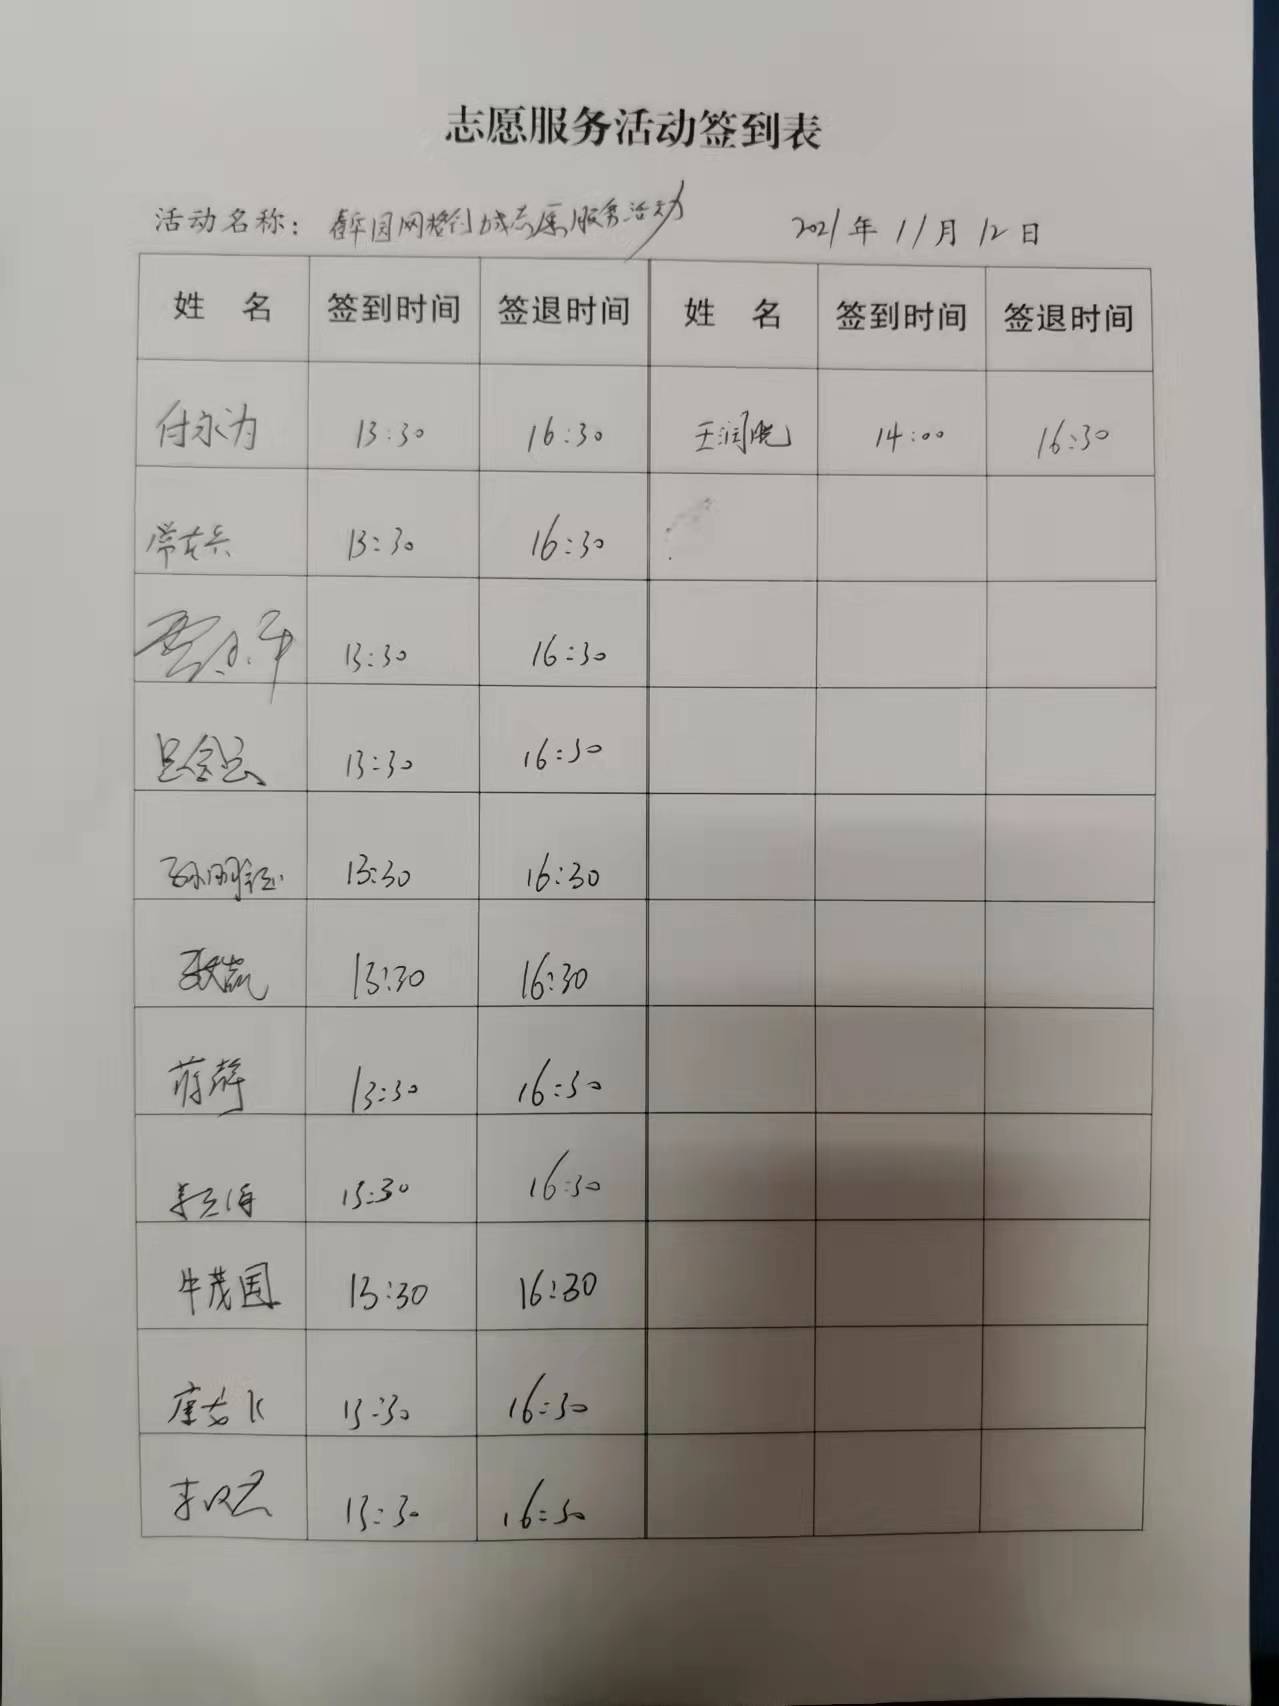 志愿服务活动签到表
活动名称：园网格创城志愿服务活动 2021年11月12日
姓 名 签到时间 签退时间 姓 名 签到时间 签退时间
付永为 13:30 16:30 王润晓 14:00 16:30
13:30 16:30
13:30 16:30
13:30 16:30
13:30 16:30
13:30 16:30
蒋静 13:30 16:30
13:30 16:30
牛茂国 13:30 16:30
13:30 16:30
13:30 16:30